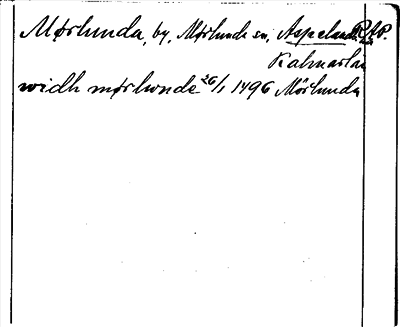 Mørlunda, by, Mørlunda sn, Aspeland RAP.
Kalmar län
widh mørlwnde 26/1 1496 Mörlunda